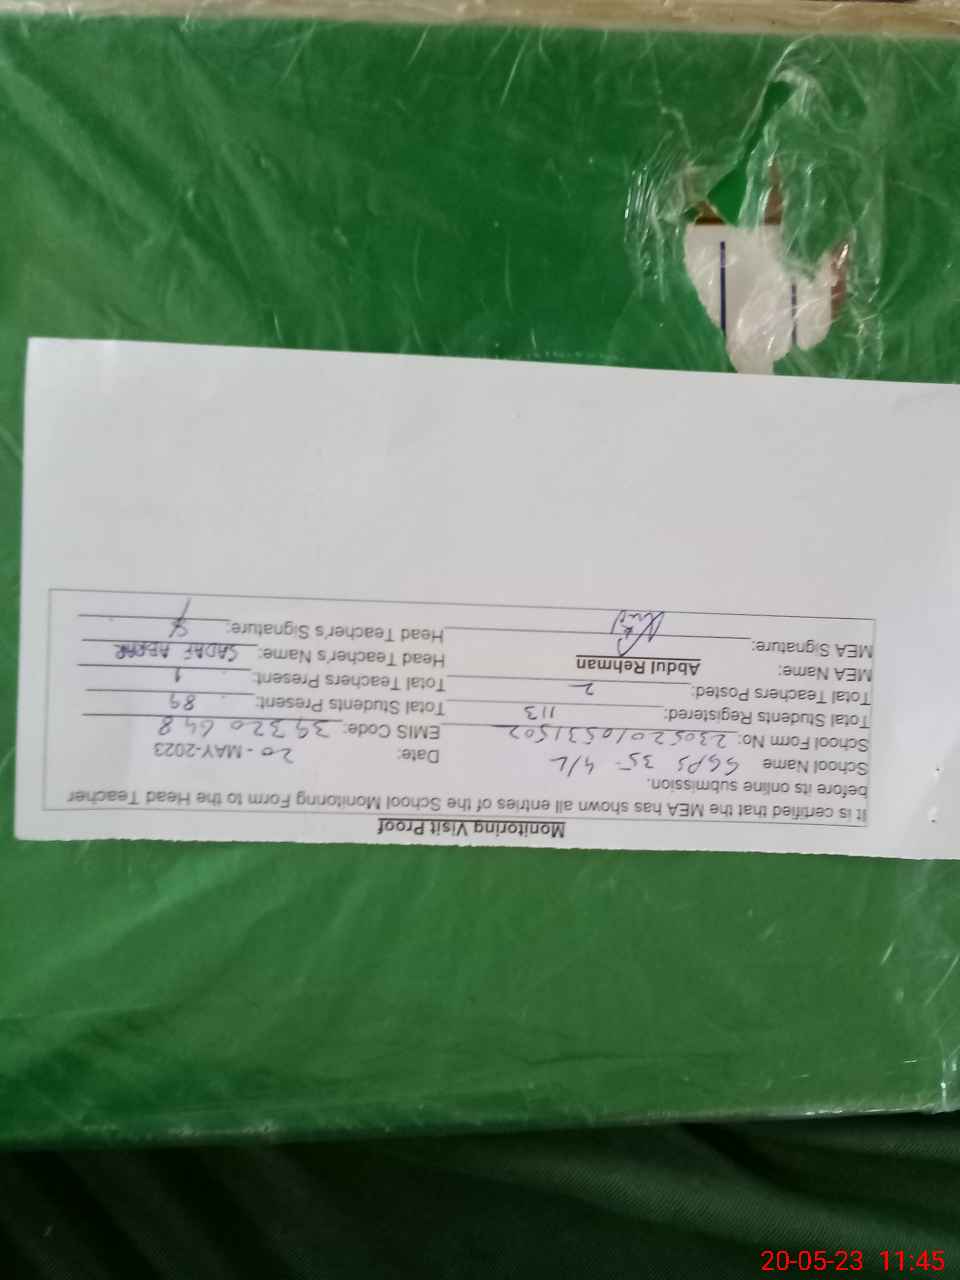 Monitoring Visit Proof
It is certified that the MEA has shown all entries of the School Monitoring Form to the Head Teacher
before its online submission.
School Name GGPS 35 4/L Date: 20 - MAY-2023
School Form No: 23052010531502 EMIS Code: 39320648
Total Students Registered: 113 Total Students Present: 89
Total Teachers Posted: 2 Total Teachers Present: 1
MEA Name: Abdul Rehman Head Teacher's Name: SADAF ABRAR
MEA Signature: Head Teacher's Signature:
20-05-23 11:45